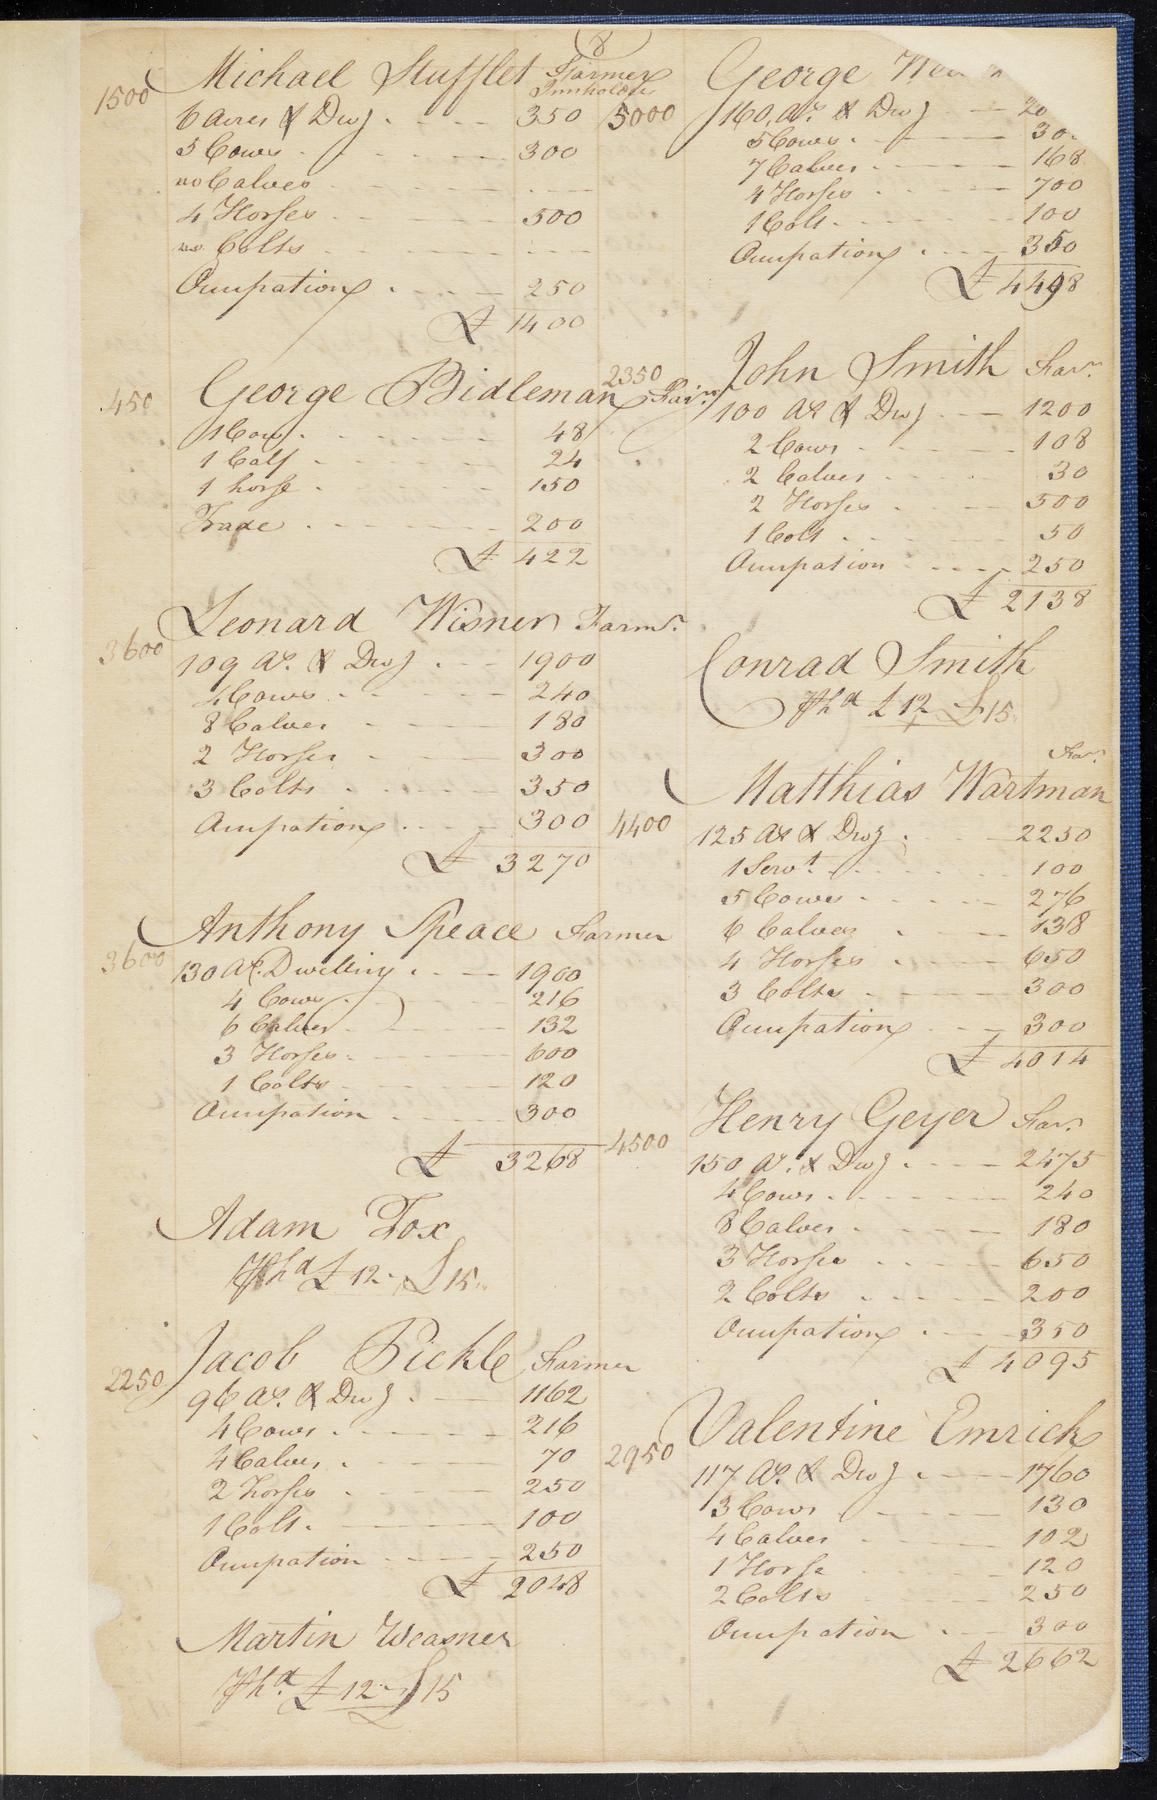 8
Michael Stufflet Farmer
Innholder
1500
6 Acres & Dwg 350
5 Cows 300
no Calves
4 Horses 500
no Colts
Occupation 250
£ 1400
450
George Bidleman Farmr
1 Cow 48
1 Calf 24
1 horse 150
Trade 200
£ 422
Leonard Wisner Farmr
3600
109 As. & Dwg 1900
4 Cows 240
8 Calves 180
2 Horses 300
3 Colts 350
Occupation 300
£ 3270
Anthony Speace Farmer
3600
130 As. Dwelling 1900
4 Cows 216
6 Calves 132
3 Horses 600
1 Colts 120
Occupation 300
£ 3268
Adam Fox
Phd £ 12 £ 15
Jacob Pickle Farmer
2250
96 As. & Dwg 1162
4 Cows 216
4 Calves 70
2 horses 250
1 Colt 100
Occupation 250
£ 2048
Martin Weasner
Phd £ 12 £ 15
George
5000
160 As. & Dwg
5 Cows
7 Calves 168
4 Horses 700
1 Colt 100
Occupation 350
£ 4498
John Smith Farr
2350
100 As & Dwg 1200
2 Cows 108
2 Calves 30
2 Horses 500
1 Colt 50
Occupation 250
£ 2138
Conrad Smith
Phd £ 12 £ 15
Farr
Matthias Wartman
4400
125 As & Dwg 2250
1 Servt 100
5 Cows 276
6 Calves 138
4 Horses 650
3 Colts 300
Occupation 300
£ 4014
Henry Geyer Farr
4500
150 As. & Dwg 2475
4 Cows 240
8 Calves 180
3 Horses 650
2 Colts 200
Occupation 350
£ 4095
Valentine Emrick
2950
117 As. & Dwg 1760
3 Cows 130
4 Calves 102
1 Horse 120
2 Colts 250
Occupation 300
£ 2662